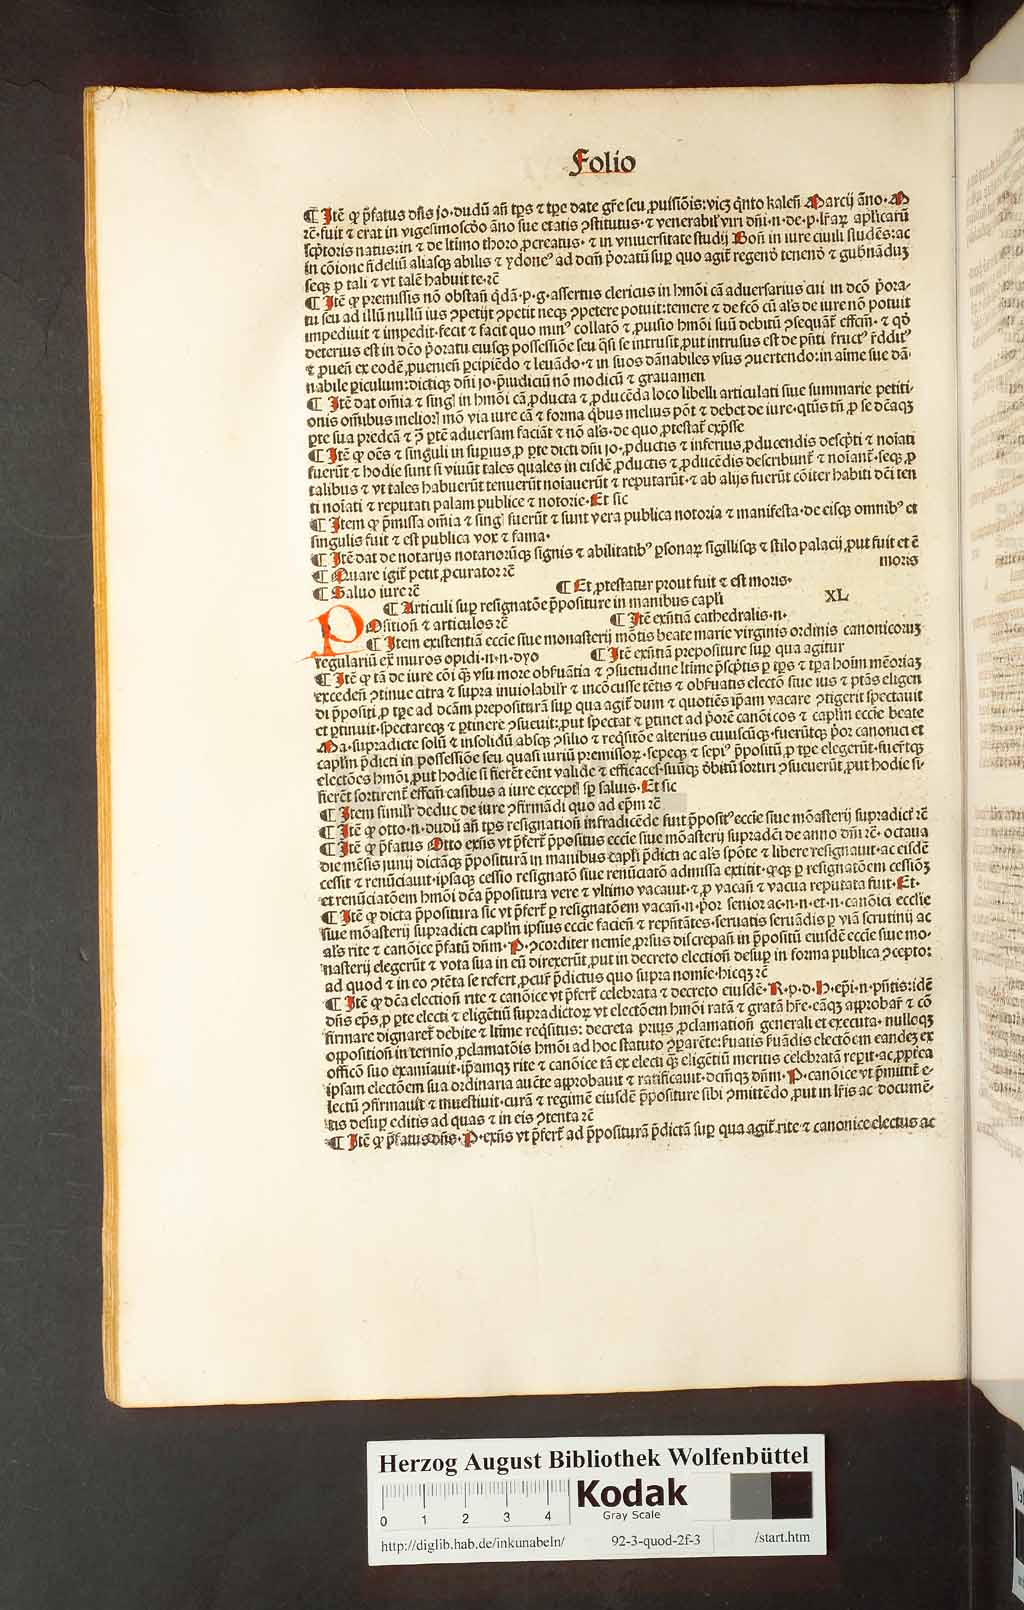 Folio
¶ Itē ꝙ p̄fatus dñs jo·dudū añ tp̄s ⁊ tp̄e date gr̄e seu ꝓuisiōis:vicꝫ q̇nto kaleñ Marcij āno·M
rc̄·fuit ⁊ erat in vigesimoscḋo āno sue etatis ↄstitutus·⁊ venerabil' viri dñi·n·de·p·lr̄aꝝ aplicarū
scp̄toris natus:in ⁊ de ltimo thoro ꝓcreatus·⁊ in vniuersitate studij Boñ in iure ciuili studēs:ac
in cōione
seqꝫ ꝑ tali ⁊ vt talē habuit te·rc̄
¶ Itē ꝙ premissis nō obstañ q̇dā·p·g·assertus clericus in hmōi cā aduersarius cui in dc̄o p̄ora-
tu seu ad illū nullū ius ↄpetijt ↄpetit neqꝫ ↄpetere potuit:temere ⁊ de fc̄o cū al's de iure nō potuit
impediuit ⁊ impedit·fecit ⁊ facit quo min⁹ collatō ⁊ ꝓuisio hmōi suū debitū ↄsequat̄ effcm̄·⁊ qḋ
deterius est in dc̄o p̄oratu eiusqꝫ possessiōe seu q̄si se intrusit,put intrusus est de pn̄ti fruct⁹ r̄ddit⁹
⁊ ꝓueñ ex eodē ꝓuenieñ ꝑcipiēdo ⁊ leuādo·⁊ in suos dānabiles vsus ↄuertendo:in aīme sue dā-
nabile ꝑiculum:dictiqꝫ dn̄i jo·p̄iudiciū nō modicū ⁊ grauamen
¶ Itē dat om̄ia ⁊ singl' in hmōi cā ꝓducta ⁊ ꝓducēda loco libelli articulati siue summarie petiti-
onis om̄ibus meliorl' mō via iure cā ⁊ forma q̇bus melius pōt ⁊ debet de iure·qt̄us tn̄ ꝑ se dc̄aqꝫ
ꝑte sua predcā ⁊ ꝯ ꝑtē aduersam faciāt ⁊ nō al's·de quo ꝓtestat̄ exp̄sse
¶ Itē ꝙ oēs ⁊ singuli in suꝑius ꝑ ꝑte dicti dn̄i jo·ꝓductis ⁊ inferius ꝓducendis descp̄ti ⁊ noīati
fuerūt ⁊ hodie sunt si viuūt tales quales in eisdē ꝓductis ⁊ ꝓducēdis describunt̄ ⁊ noīant̄·seqꝫ ꝑ
talibus ⁊ vt tales habuerūt tenuerūt noīauerūt ⁊ reputarūt·⁊ ab alijs fuerūt cōiter habiti dc̄i ten
ti noīati ⁊ reputati palam publice ⁊ notorie·Et sic
¶ Item ꝙ p̄missa om̄ia ⁊ singl' fuerūt ⁊ sunt vera publica notoria ⁊ manifesta·de eisqꝫ omnib⁹ et
singulis fuit ⁊ est publica vox ⁊ fama·
¶ Itē dat de notarijs notariorūqꝫ signis ⁊ abilitatib⁹ ꝑsonaꝝ sigillisqꝫ ⁊ stilo palacij,put fuit et ē
moris
¶ Quare igit̄ petit ꝓcurator rc̄
¶ Saluo iure rc̄ ¶ Et ꝓtestatur prout fuit ⁊ est moris·
¶ Articuli suꝑ resignatōe p̄positure in manibus capl'i XL
POsitioñ ⁊ articulos rc̄ ¶ Itē exn̄tiā cathedralis·n·
¶ Item existentiā eccīe siue monasterij mōtis beate marie virginis ordinis canonicoruꝫ
regulariū ex̄ muros opidi·n·n·dyo ¶ Itē exn̄tiā prepositure suꝑ qua agitur
¶ Itē ꝙ tā de iure cōi q̄ꝫ vsu more obƒuātia ⁊ ↄsuetudine ltime p̄scp̄tis ꝑ tp̄s ⁊ tp̄a hoīm mēoriaꝫ
excedeñ ↄtinue citra ⁊ supra inuiolabilr̄ ⁊ incōcusse tētis ⁊ obƒuatis electō siue ius ⁊ ptās eligen
di p̄positi ꝓ tp̄e ad dcām preposituā suꝑ qua agit̄ dum ⁊ quotiēs ip̄am vacare ↄtigerit spectauit
et ꝑtinuit·spectareqꝫ ⁊ ꝑtinere ↄsueuit:,put spectat ⁊ ꝑtinet ad p̄orē canōicos ⁊ caplīm eccīe beate
Ma·supradicte solū ⁊ insolidū absqꝫ ↄsilio ⁊ reqsitōe alterius cuiuscūqꝫ·fuerūtqꝫ p̄or canonici et
caplīm p̄dicti in possessiōe seu quasi iuriū premissoꝝ·sepeqꝫ ⁊ sepi⁹ p̄positū ꝓ tp̄e elegerūt·fuer̄tqꝫ
electōes hmōi,put hodie si fierēt eēnt valide ⁊ efficaces·suūqꝫ dbitū sortiri ↄsueuerūt,put hodie si-
fierēt sortirent̄ effcm̄ casibus a iure exceptl' sp̄ saluis·Et sic
¶ Item similr̄ deduc̄ de iure ↄfirmādi quo ad ep̄m rc̄
¶ Itē ꝙ otto·n·dudū añ tp̄s resignatioñ infradicēde sunt p̄posit⁹ eccīe siue mōasterij supradict̄ rc̄
¶ Itē ꝙ p̄fatus Otto exn̄s vt p̄fert̄ p̄positus eccīe siue mōasterij supradc̄i de anno dn̄i rc̄·octaua
die mēsis junij dictāqꝫ p̄posituā in manibus capl'i p̄dicti ac al's spōte ⁊ libere resignauit·ac eisdē
cessit ⁊ renūciauit·ipsaqꝫ cessio resignatō siue renūciatō admissa extitit·qꝫqꝫ ꝑ resignatōem cessiōꝫ
et renūciatōem hmōi dc̄a p̄positura vere ⁊ vltimo vacauit·⁊ ꝓ vacañ ⁊ vacua reputata fuit·Et·
¶ Itē ꝙ dicta p̄positura sic vt p̄fert̄ ꝑ resignatōem vacañ·n·p̄or senior ac·n·n·et·n·canōici ecclīe
siue mōasterij supradicti caplīm ipsius eccīe facieñ ⁊ repn̄tātes·seruatis seruādis ꝑ viā scrutinij ac
al's rite ⁊ canōice p̄fatū dn̄m·P·ↄcorditer nemie ꝓrsus discrepañ in p̄positū eiusdē eccīe siue mo-
nasterij elegerūt ⁊ vota sua in eū direxerūt,put in decreto electioñ desuꝑ in forma publica ↄcepto:
ad quod ⁊ in eo ↄtēta se refert ꝓcur̄ p̄dictus quo supra nomie·hicqꝫ rc̄
¶ Itē ꝙ dc̄a electioñ rite ⁊ canōice vt p̄fert̄ celebrata ⁊ decreto eiusdē·R·p·d·H·ep̄i·n·pn̄tis:idē
dn̄s ep̄s ꝓ ꝑte electi ⁊ eligētiū supradictoꝝ vt electōem hmōi ratā ⁊ gratā hr̄e·eāqꝫ approbar̄ ⁊ cō
firmare dignaret̄ debite ⁊ ltime reqsitus: decreta prius ꝓclamatioñ generali et executa·nulloqꝫ
oppositioñ in termīo ꝓclamatōis hmōi ad hoc statuto ↄparēte:ƒuatis ƒuādis electōem eandeꝫ ex
officō suo examīauit·ip̄amqꝫ rite ⁊ canōice tā ex electi q̄ꝫ eligētiū meritis celebratā reꝑit·ac ꝓpt̄ea
ipsam electōem sua ordinaria auc̄te approbauit ⁊ ratificauit·dc̄mqꝫ dn̄m·P·canōice vt p̄mittit̄ e-
lectū ↄfirmauit ⁊ inuestiuit·curā ⁊ regimē eiusdē p̄positure sibi ↄmittēdo,put in lr̄is ac documē-
tis desuꝑ editis ad quas ⁊ in eis ↄtenta rc̄
¶ Itē ꝙ p̄fatus dn̄s·P·exn̄s vt p̄fert̄ ad p̄posituā p̄dictā suꝑ qua agit̄ rite ⁊ canonice electus ac
Herzog August Bibliothek Wolfenbüttel
0 1 2 3 4 Kodak
Gray Scale
http://diglib.hab.de/inkunabeln/ 92-3-quod-2f-3 /start.htm